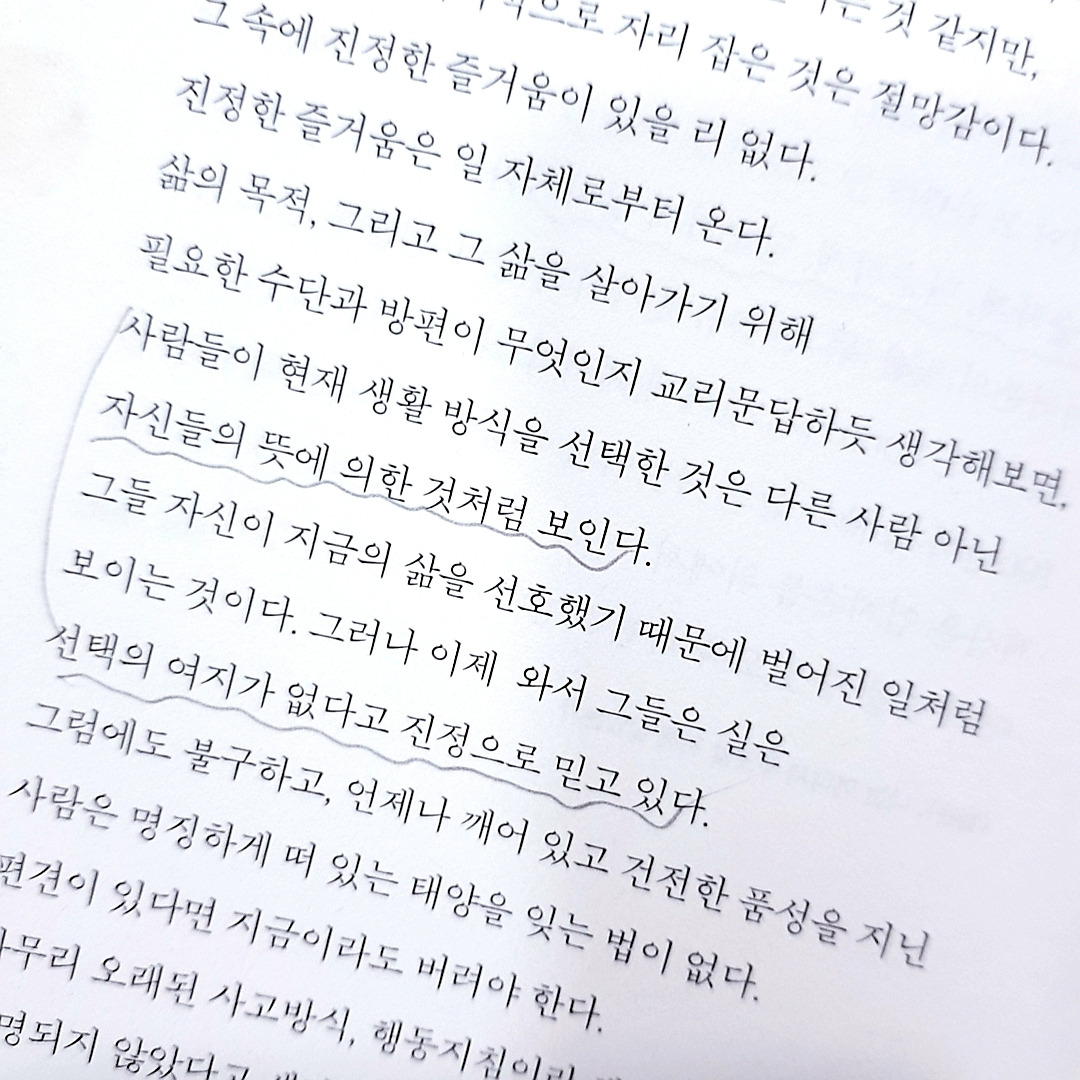 것 같지만,
자리 잡은 것은 절망감이다.
그 속에 진정한 즐거움이 있을 리 없다.
진정한 즐거움은 일 자체로부터 온다.
삶의 목적, 그리고 그 삶을 살아가기 위해
필요한 수단과 방편이 무엇인지 교리문답하듯 생각해보면,
사람들이 현재 생활 방식을 선택한 것은 다른 사람 아닌
자신들의 뜻에 의한 것처럼 보인다.
그들 자신이 지금의 삶을 선호했기 때문에 벌어진 일처럼
보이는 것이다. 그러나 이제 와서 그들은 실은
선택의 여지가 없다고 진정으로 믿고 있다.
그럼에도 불구하고, 언제나 깨어 있고 건전한 품성을 지닌
사람은 명징하게 떠 있는 태양을 잊는 법이 없다.
편견이 있다면 지금이라도 버려야 한다.
오래된 사고방식, 행동지침이라
않았다고